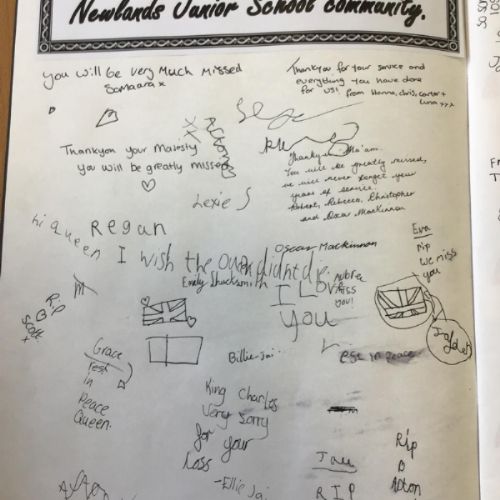 Newlands Junior School community.
You will be very Much missed
Samaara x
Thankyou for your service and
everything you have done
for us! from Henna, chris, conter +
luna xxx
Thankyou your Majesty
you will be greatly missed
Thankyou Ma'am.
You will be greatly missed,
we will never forget your
years of service.
Robert, Rebecca, Christopher
and Oscar MacKinnon
Lexie S
Regan
Oscar Mackinnon
hi Queen I wish the Queen didnt die
Emily Shucksmith
I Love
You
Aubrea
miss
you!
Eva
rip
we miss
you
Rip
Scott
x
Grace
rest
in
Peace
Queen.
Billie-Jai
Rest in peace
Jayden
King Charles
Very sorry
for your
Loss
-Ellie Jai
RIP
Rip